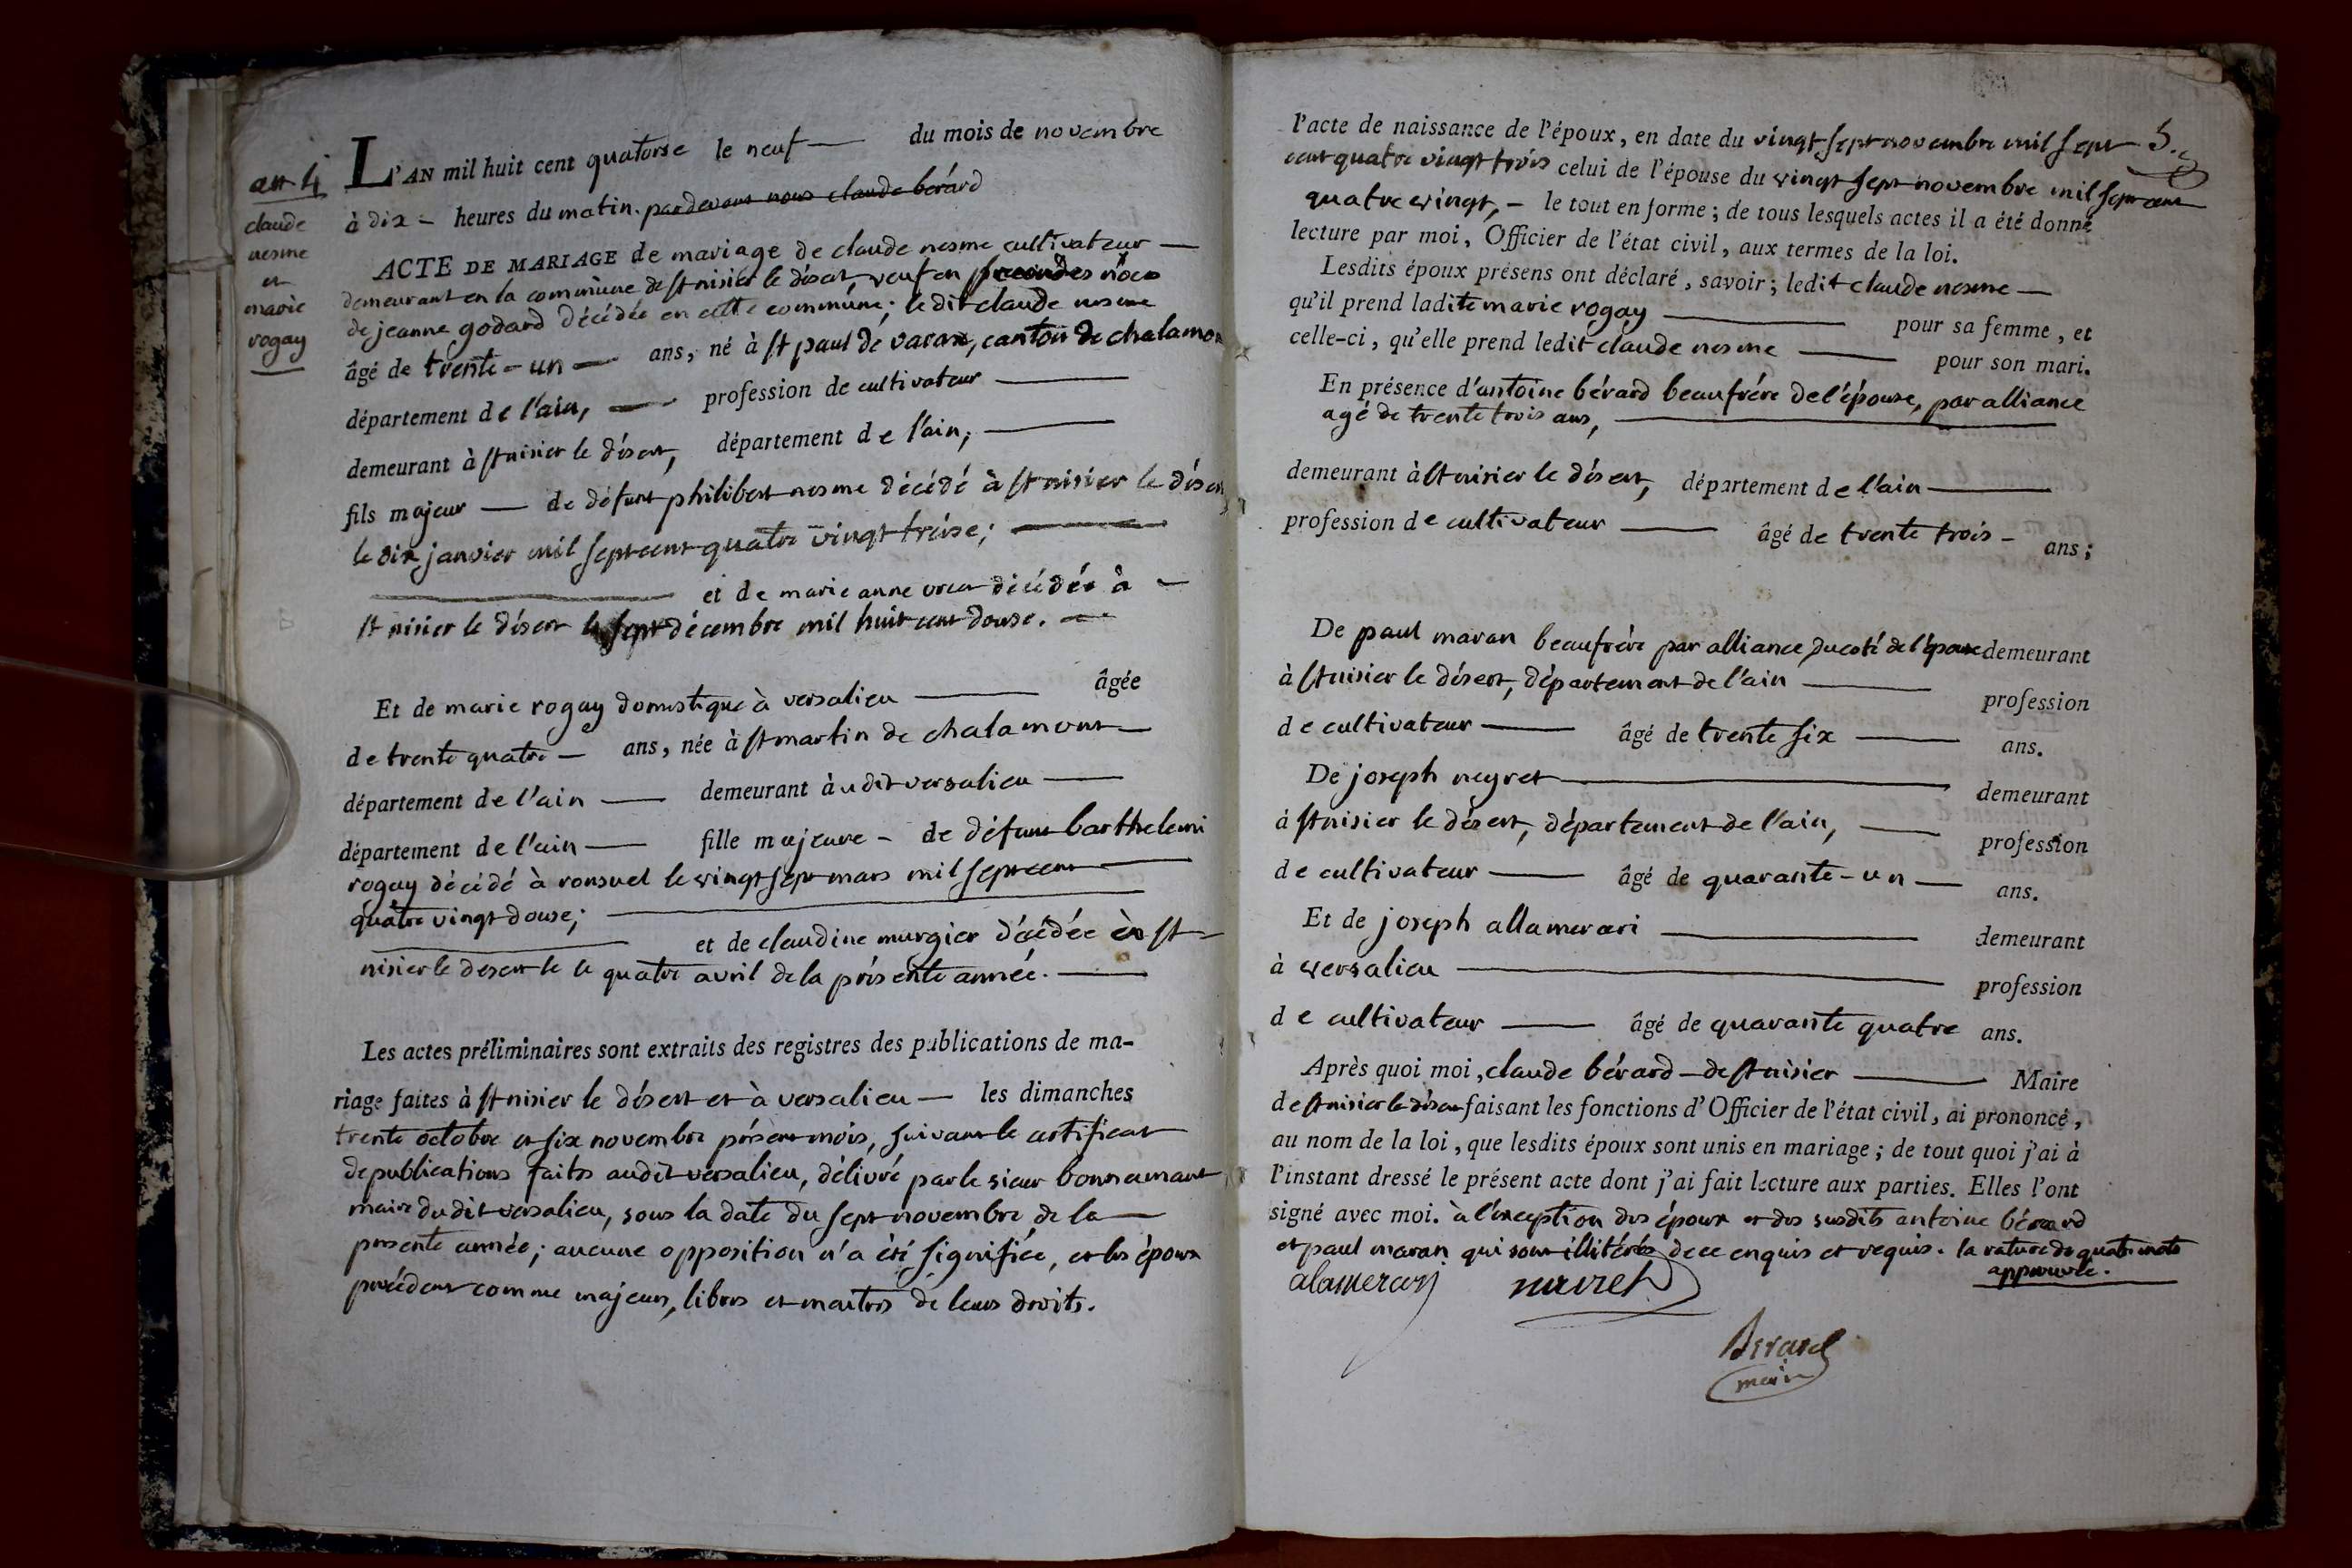 art 4
claude
nesme
et
marie
rogay
L'AN mil huit cent quatorse le neuf du mois de novembre
à dix heures du matin. pardevant nous claude bérard
ACTE DE MARIAGE de mariage de claude nesme cultivateur
demeurant en la commune de st nisier le désert, veuf en secondes nôces
de jeanne godard décédée en cette commune; le dit claude nesme
âgé de trente-un ans, né à st paul de varax, canton de chalamon
département de l'ain, profession de cultivateur
demeurant à st nisier le désert, département de l'ain;
fils majeur de défunt philibert nesme décédé à st nisier le désert
le dix janvier mil sept cent quatre vingt treise;
et de marie anne décédée à
st nisier le désert le sept décembre mil huit cent douse.
Et de marie rogay domestique à versalieu âgée
de trente quatre ans, née à st martin de chalamont
département de l'ain demeurant àudit versalieu
département de l'ain fille majeure de défunt barthelemi
rogay décédé à ronsuel le vingt sept mars mil sept cent
quatre vingt douse;
et de claudine murgier décédée à st
nisier le desert le le quatre avril de la présente année.
Les actes préliminaires sont extraits des registres des publications de ma-
riage faites à st nisier le désert et à versalieu les dimanches
trente octobre et six novembre présent mois, suivant le certificat
de publications faites audit versalieu, délivré par le sieur bonnamant
maire dudit versalieu, sous la date du sept novembre de la
présente année; aucune opposition n'a été signifiée, et les époux
procédent comme majeurs, libres et maitres de leurs droits.
5.
l'acte de naissance de l'époux, en date du vingt sept novembre mil sept
cent quatre vingt trois celui de l'épouse du vingt sept novembre mil sept cent
quatre vingt, le tout en forme; de tous lesquels actes il a été donné
lecture par moi, Officier de l'état civil, aux termes de la loi.
Lesdits époux présens ont déclaré, savoir; ledit claude nesme
qu'il prend ladite marie rogay pour sa femme, et
celle-ci, qu'elle prend ledit claude nesme pour son mari.
En présence d'antoine bérard beaufrére de l'épouse, par alliance
agé de trente trois ans,
demeurant à st nisier le désert, département de l'ain
profession de cultivateur âgé de trente trois ans;
De paul maran beaufrère par alliance du coté de l'épouse demeurant
à st nisier le désert, département de l'ain profession
de cultivateur âgé de trente six ans.
De joseph neyret demeurant
à st nisier le désert, département de l'ain, profession
de cultivateur âgé de quarante-un ans.
Et de joseph allamercri demeurant
à versalieu profession
de cultivateur âgé de quarante quatre ans.
Après quoi moi, claude bérard de st nisier Maire
de st nisier le désert faisant les fonctions d'Officier de l'état civil, ai prononcé,
au nom de la loi, que lesdits époux sont unis en mariage; de tout quoi j'ai à
l'instant dressé le présent acte dont j'ai fait lecture aux parties. Elles l'ont
signé avec moi. à l'exception des époux et des susdits antoine bérard
et paul maran qui sont illitérés de ce enquis et requis. la rature de quatre mots
approuvée.
Berard
maire